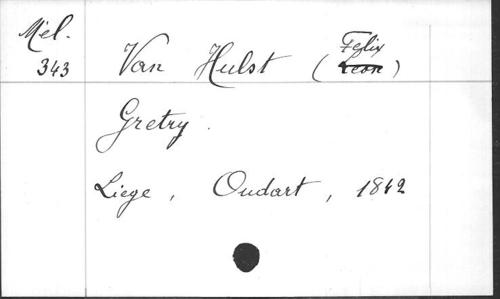 Mél.
343
Van Hulst (Felix Leon)
Gretry.
Liege, Oudart, 1842